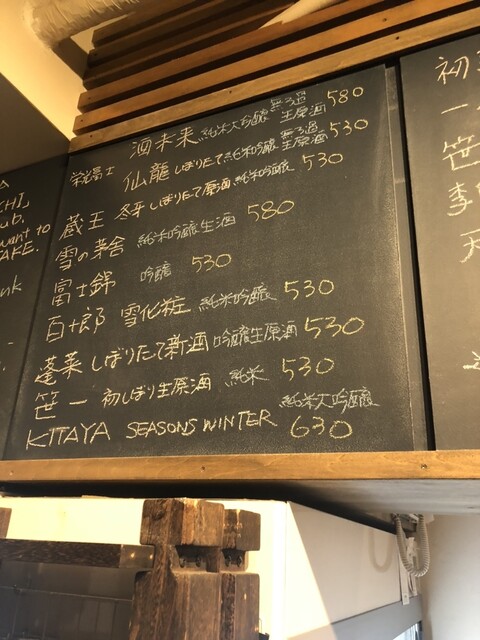 栄光冨士 酒未来 純米大吟醸 無ろ過生原酒 580
仙龍 しぼりたて純米吟醸 無ろ過生原酒 530
蔵王 冬芽 しぼりたて原酒 純米吟醸 530
雪の茅舎 純米吟醸生酒 580
冨士錦 吟醸 530
百十郎 雪化粧 純米吟醸 530
蓬莱 しぼりたて新酒 吟醸生原酒 530
笹一 初しぼり生原酒 純米 530
KITAYA SEASONS WINTER 純米大吟醸 630
CHI]
want to
SAKE.
初
一
笹
李
天